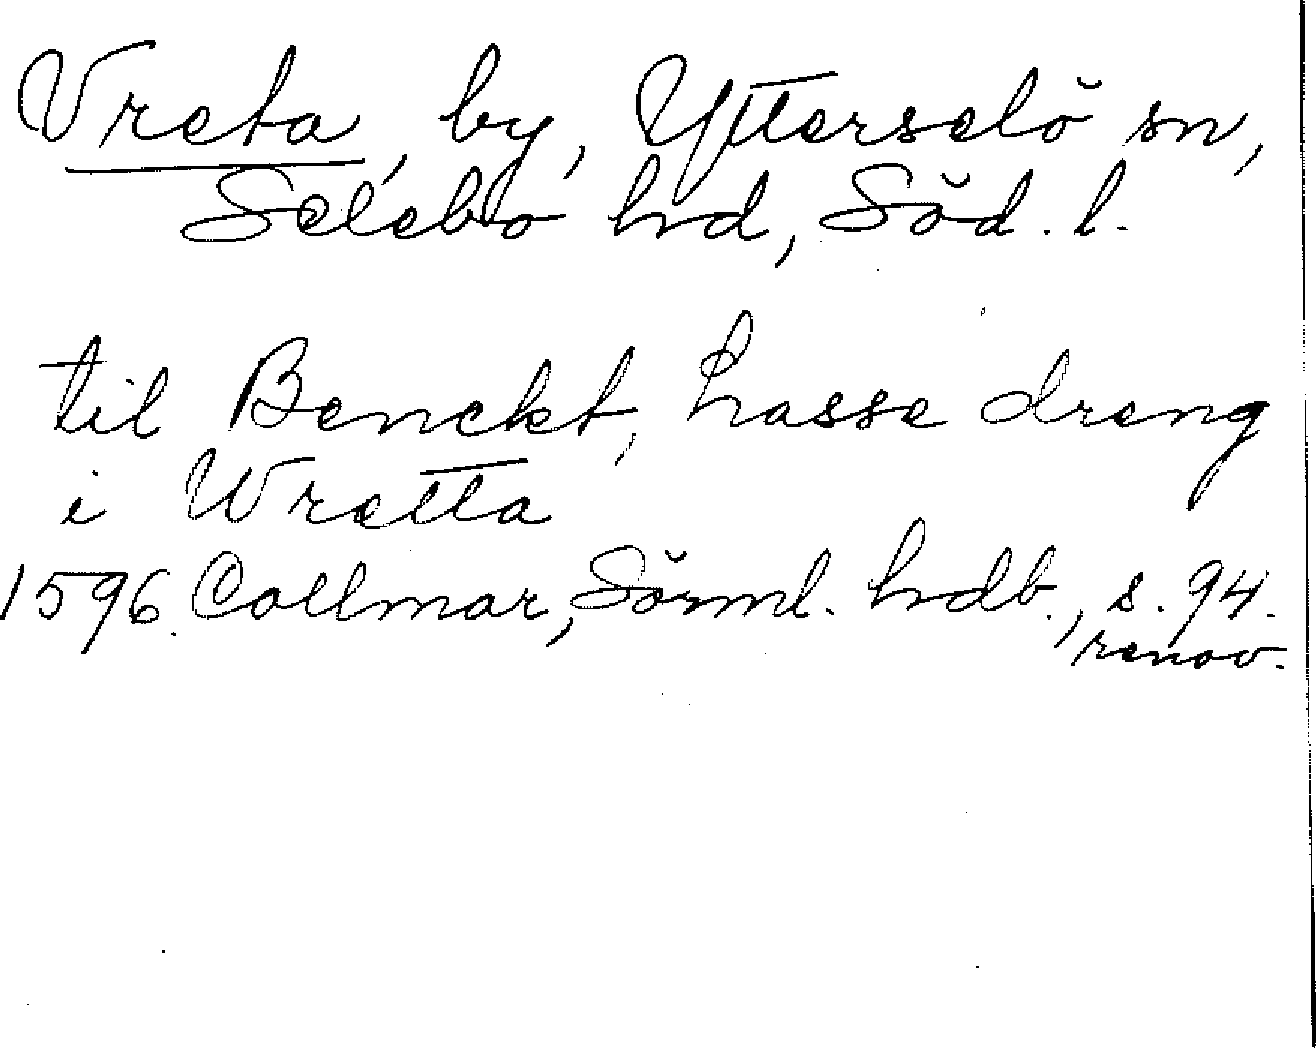 Vreta, by, Ytterselö sn,
Selebo hd, Söd. l.
til Benckt, Lasse dreng
i Wretta
1596. Collmar, Sörml. hdb., s. 94.
renov.